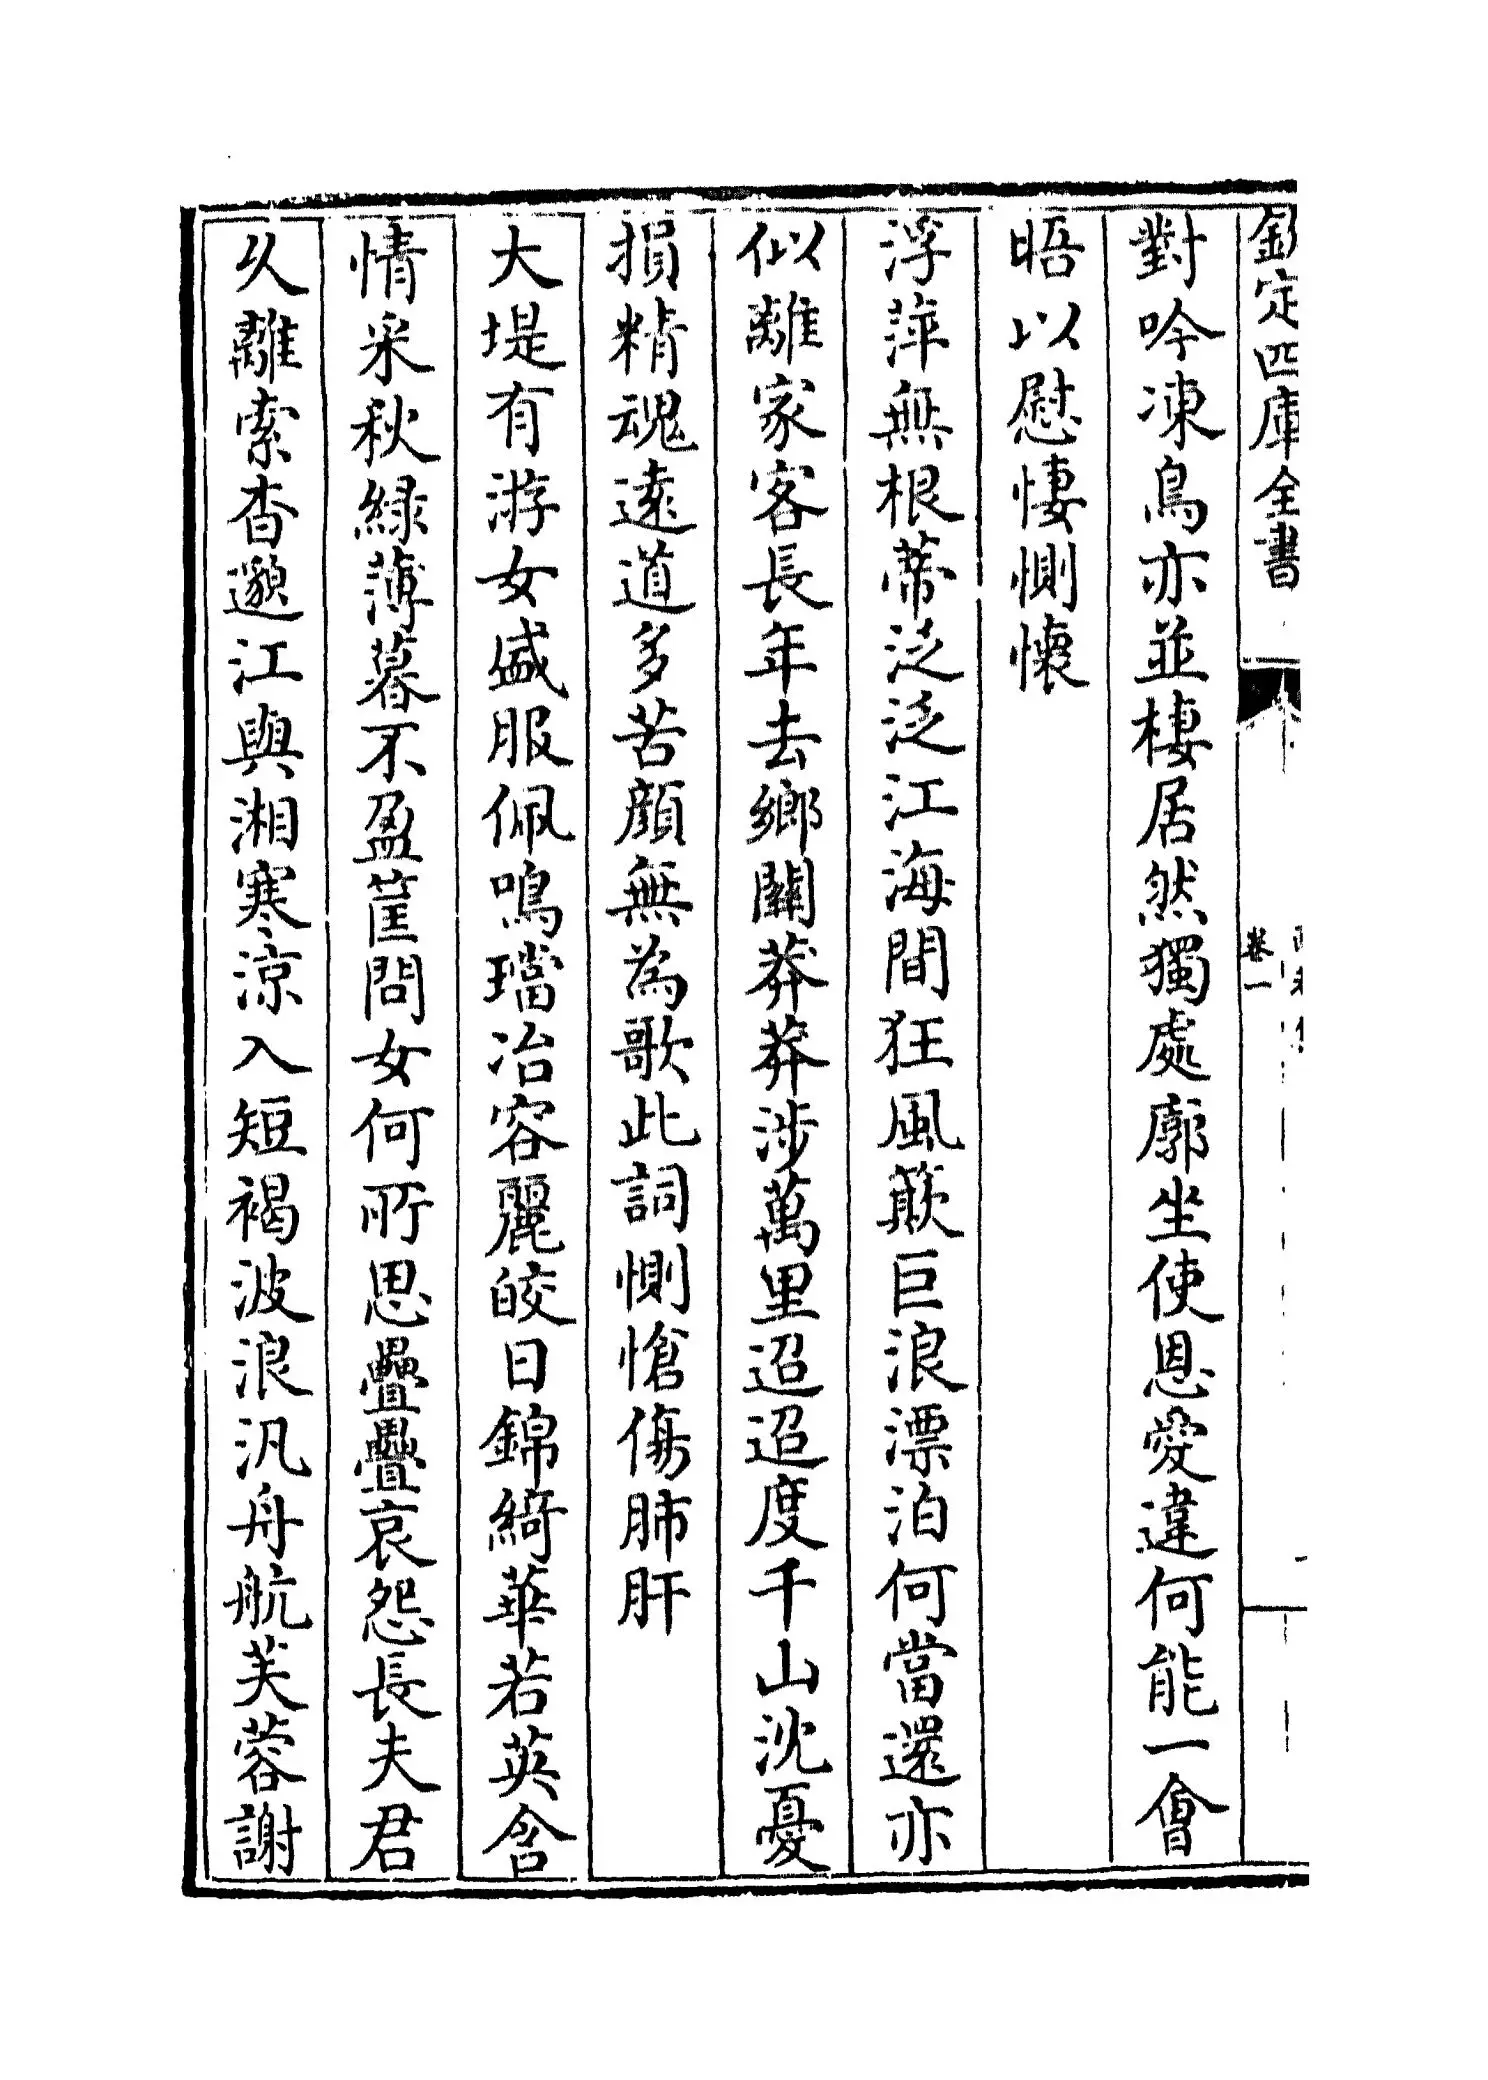 欽定四庫全書
卷一
對吟凍鳥亦並棲居然獨處廓坐使恩愛違何能一會
晤以慰悽惻懷
浮萍無根蒂泛泛江海間狂風簸巨浪漂泊何當還亦
似離家客長年去鄉關莽莽涉萬里迢迢度千山沈憂
損精魂遠道多苦顔無為歌此詞惻愴傷肺肝
大堤有游女盛服佩鳴璫冶容麗皎日錦綺華若英含
情采秋緑薄暮不盈筐問女何所思疊疊哀怨長夫君
久離索杳邈江與湘寒涼入短褐波浪汎舟航芙蓉謝